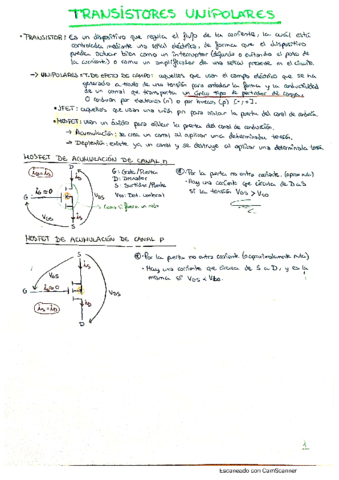 TRANSISTORES UNIPOLARES
• TRANSISTOR: Es un dispositivo que regula el flujo de la corriente, la cual está
controlada mediante una señal eléctrica, de forma que el dispositivo
pueden actuar bien como un interruptor (dejando o evitando el paso de
la corriente) o como un amplificador de una señal presente en el circuito.
→ UNIPOLARES = T. DE EFECTO DE CAMPO: aquellos que usan el campo eléctrico que se ha
generado a través de una tensión para controlar la forma y la conductividad
de un canal que transporta un único tipo de portador de cargas
O bien por electrones (n) o por huecos (p) [- y +].
• JFET: aquellos que usan una unión pn para aislar la puerta del canal de
• MOSFET: usan un óxido para aislar la puerta del canal de conducción.
→ Acumulación: se crea un canal al aplicar una determinada tensión.
→ Deplexión: existe ya un canal y se destruye al aplicar una determinada tens.
MOSFET DE ACUMULACIÓN DE CANAL n
iD = iS
D
iD
G iG ≈ 0
VDS
VGS
iS
S
G: Gate/Puerta
D: Drenador
S: Surtidor/Fuente
⊛ Por la puerta no entra corriente. (aprox nula)
• Hay una corriente que circula de D a S
si la tensión VGS >
MOSFET DE ACUMULACIÓN DE CANAL P
S
VGS
iS
G iG ≈ 0
VDS
iD
iS = iD
D
⊛ Por la puerta no entra corriente (aproximadamente nula)
• Hay una corriente que circula de S a D, y es la
misma si VGS <
1
Escaneado con CamScanner